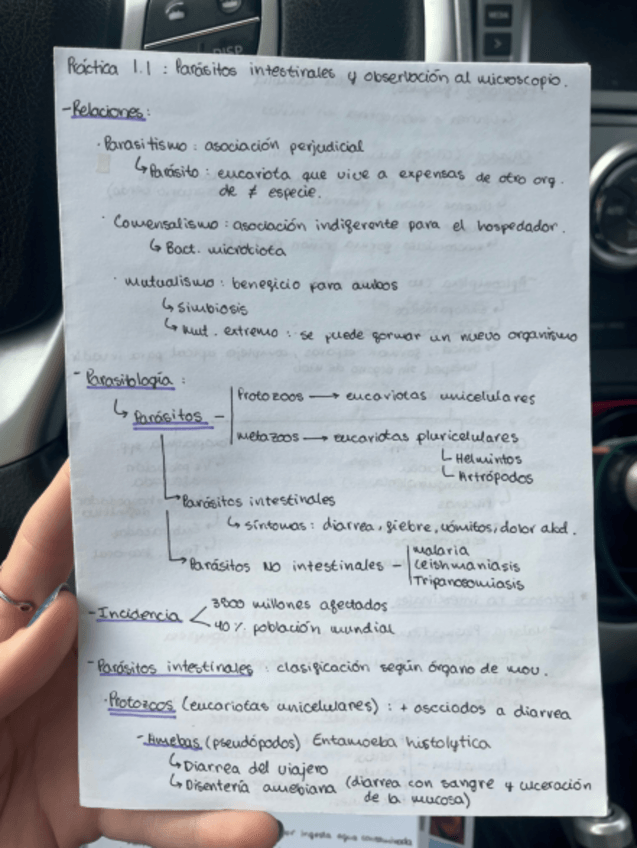 DISP
MEDIA
Práctica 1.1 : Parásitos intestinales y observación al microscopio.
- Relaciones:
· Parasitismo : asociación perjudicial
↳ Parásito : eucariota que vive a expensas de otro org.
de ≠ especie.
· Comensalismo : asociación indiferente para el hospedador.
↳ Bact. microbiota
· Mutualismo : beneficio para ambos
↳ Simbiosis
↳ Mut. extremo : se puede formar un nuevo organismo
- Parasitología :
↳ Parásitos -
Protozoos → eucariotas unicelulares
Metazoos → eucariotas pluricelulares
Helmintos
Artrópodos
Parásitos intestinales
↳ síntomas : diarrea, fiebre, vómitos, dolor abd.
Parásitos NO intestinales -
Malaria
Leishmaniasis
Tripanosomiasis
- Incidencia
3800 millones afectados
40 % población mundial
- Parásitos intestinales : clasificación según órgano de mov.
· Protozoos (eucariotas unicelulares) : + asociados a diarrea
- Amebas (pseudópodos) Entamoeba histolytica
↳ Diarrea del viajero
↳ Disentería amebiana (diarrea con sangre y ulceración
de la mucosa)
ingesta agua contaminada